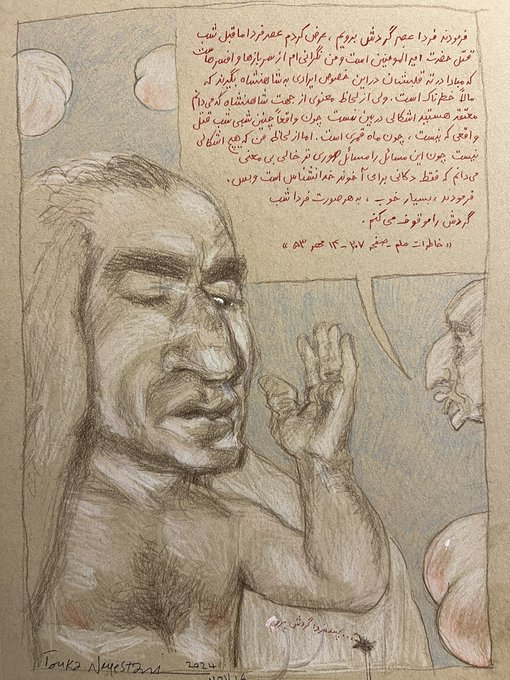 فرمودند فردا عصر گردش برویم، عرض کردم عصر فردا ما قبل شب
قتل حضرت امیرالمومنین است و من نگرانی‌ام از سربازها و افسرهاست
که مبادا در ته قلبشان در این خصوص ایرادی به شاهنشاه بگیرند که
مآلاً خطرناک است. ولی از لحاظ معنوی از جهت شاهنشاه که می‌دانم
معتقد هستید اشکالی در بین نیست چون واقعاً چنین شبی شب قتل
واقعی که نیست، چون ماه قمری است. اما از لحاظ من که هیچ اشکالی
نیست چون این مسائل را مسائل صوری تو خالی بی معنی
می‌دانم که فقط دکانی برای آخوند خدانشناس است و بس.
فرمودند، بسیار خوب، به هر صورت فردا شب
گردش را موقوف می‌کنم.
«خاطرات علم - صفحه ۲۰۷ - ۱۴ مهر ۵۳»
فردا گردش بریم
Touka Neyestani 2024